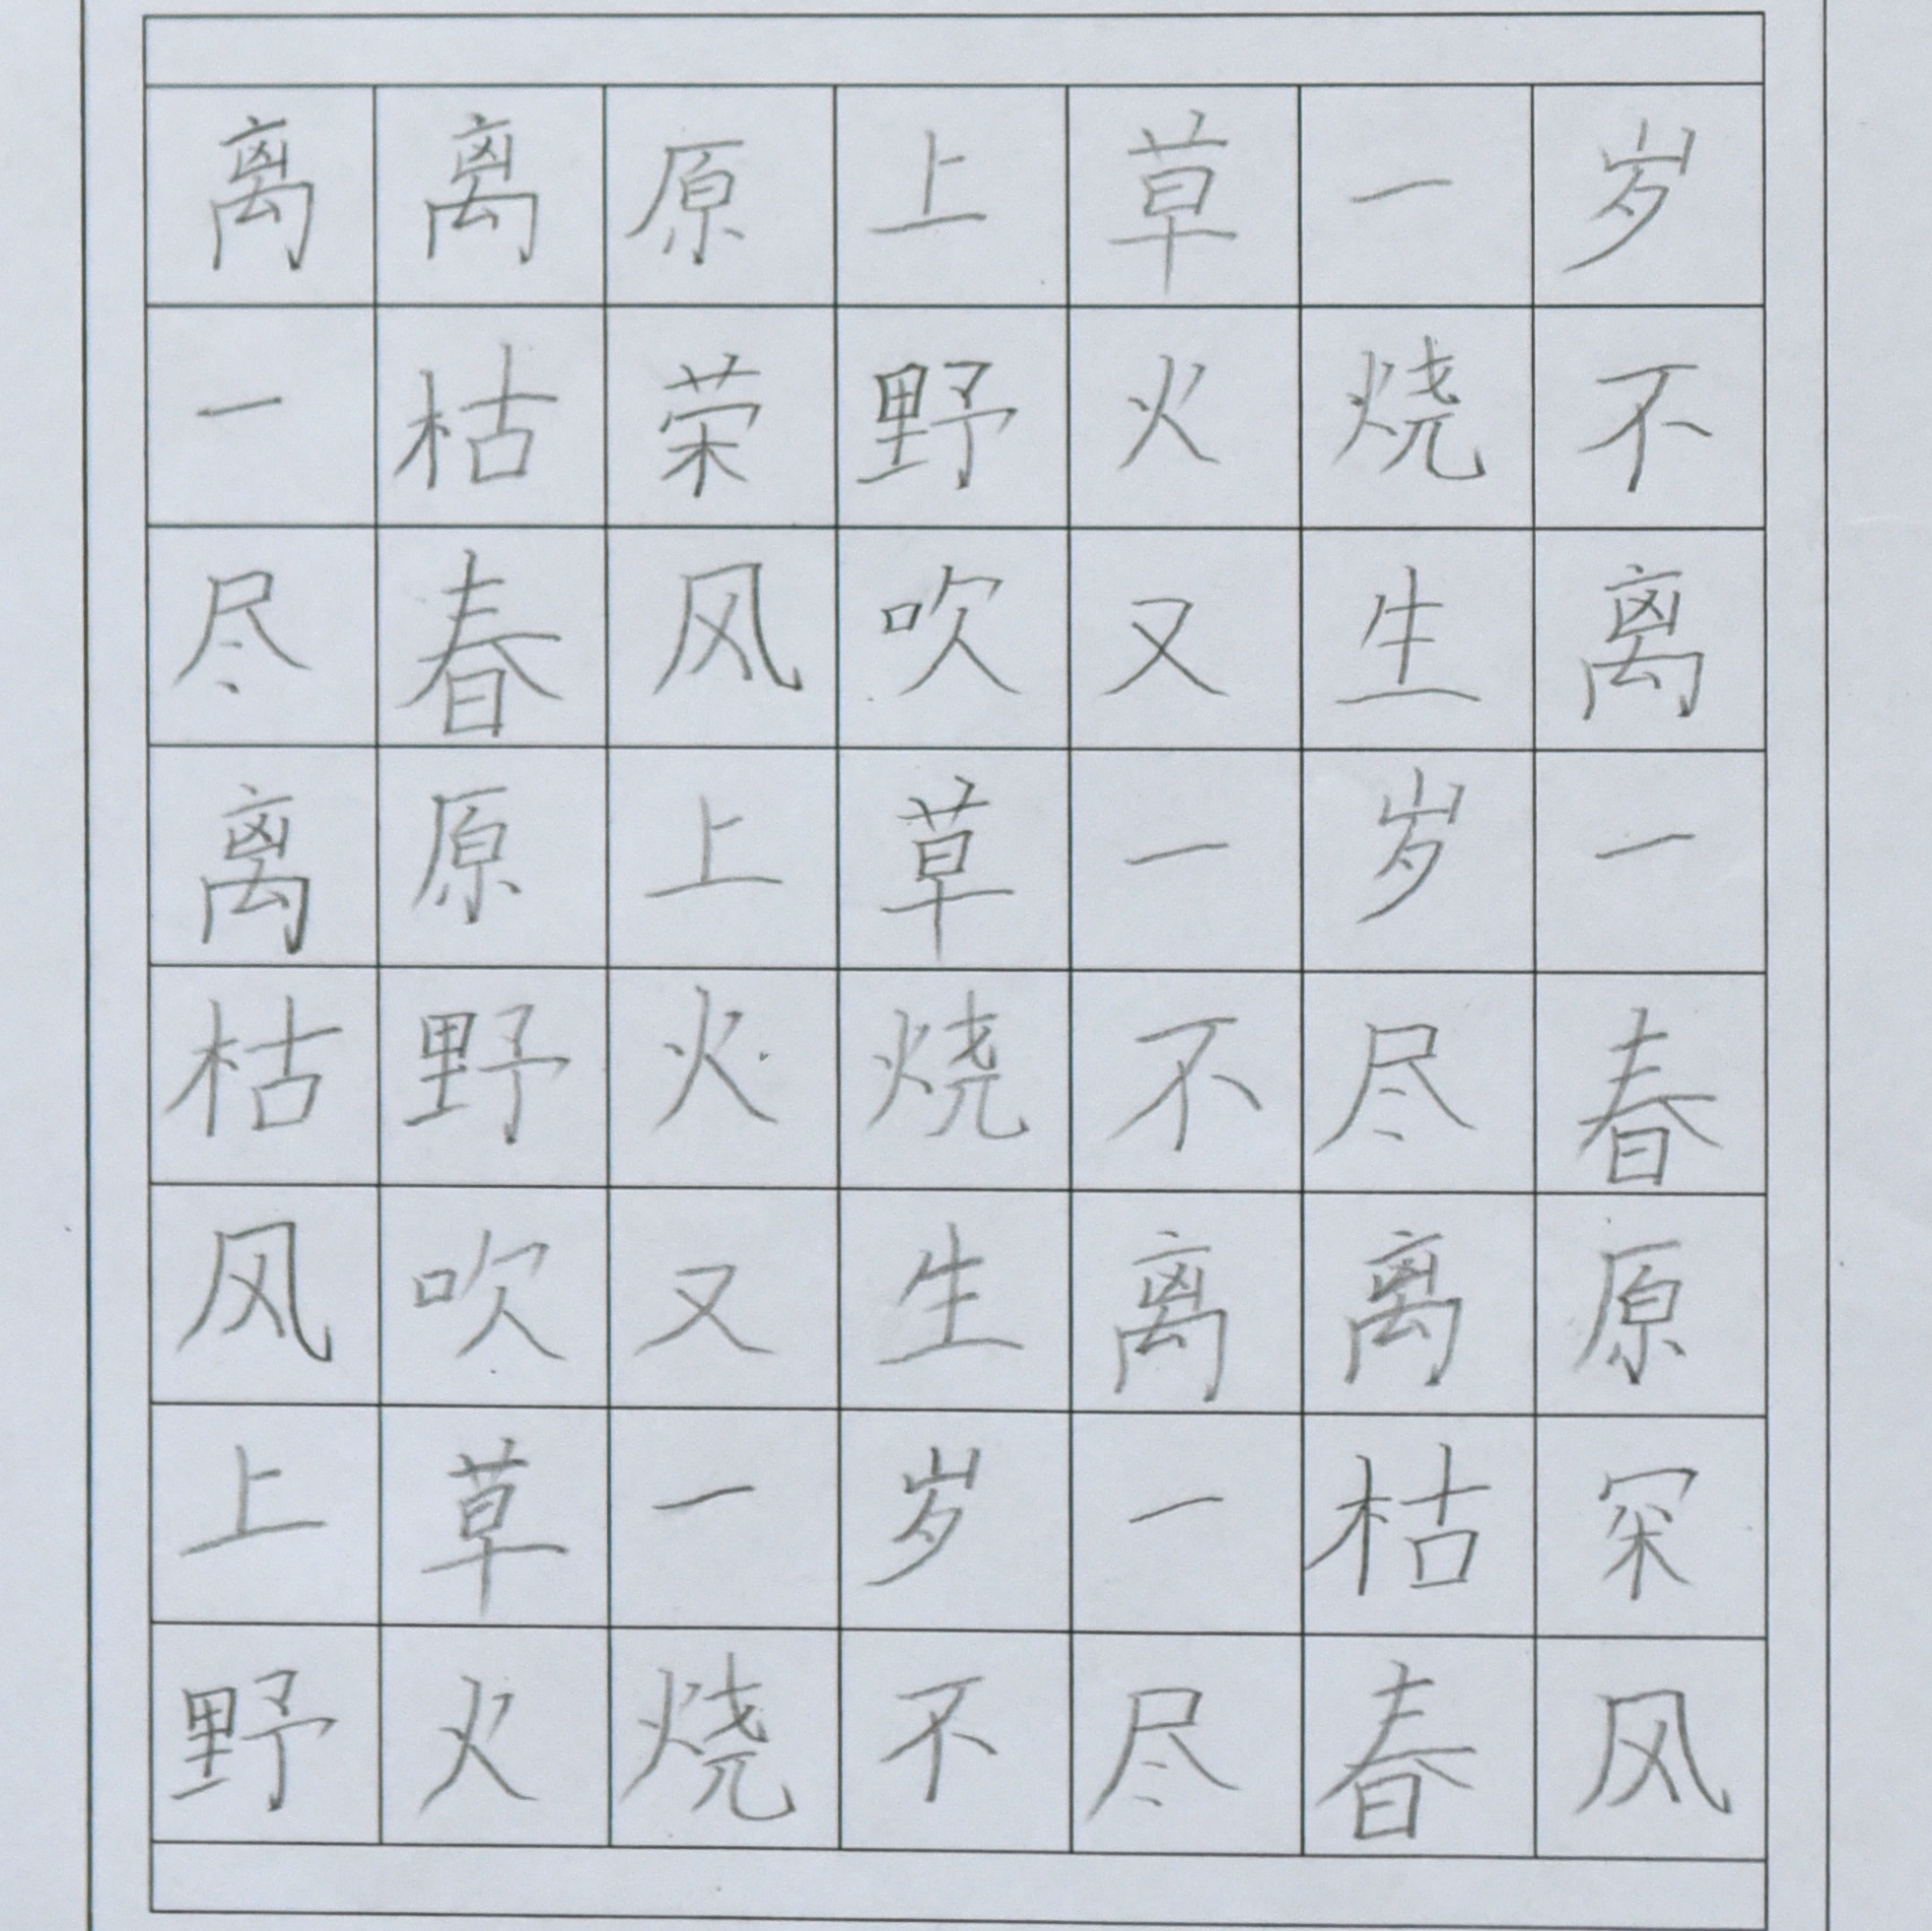 离离原上草一岁
一枯荣野火烧不
尽春风吹又生离
离原上草一岁一
枯野火烧不尽春
风吹又生离离原
上草一岁一枯罙
野火烧不尽春风